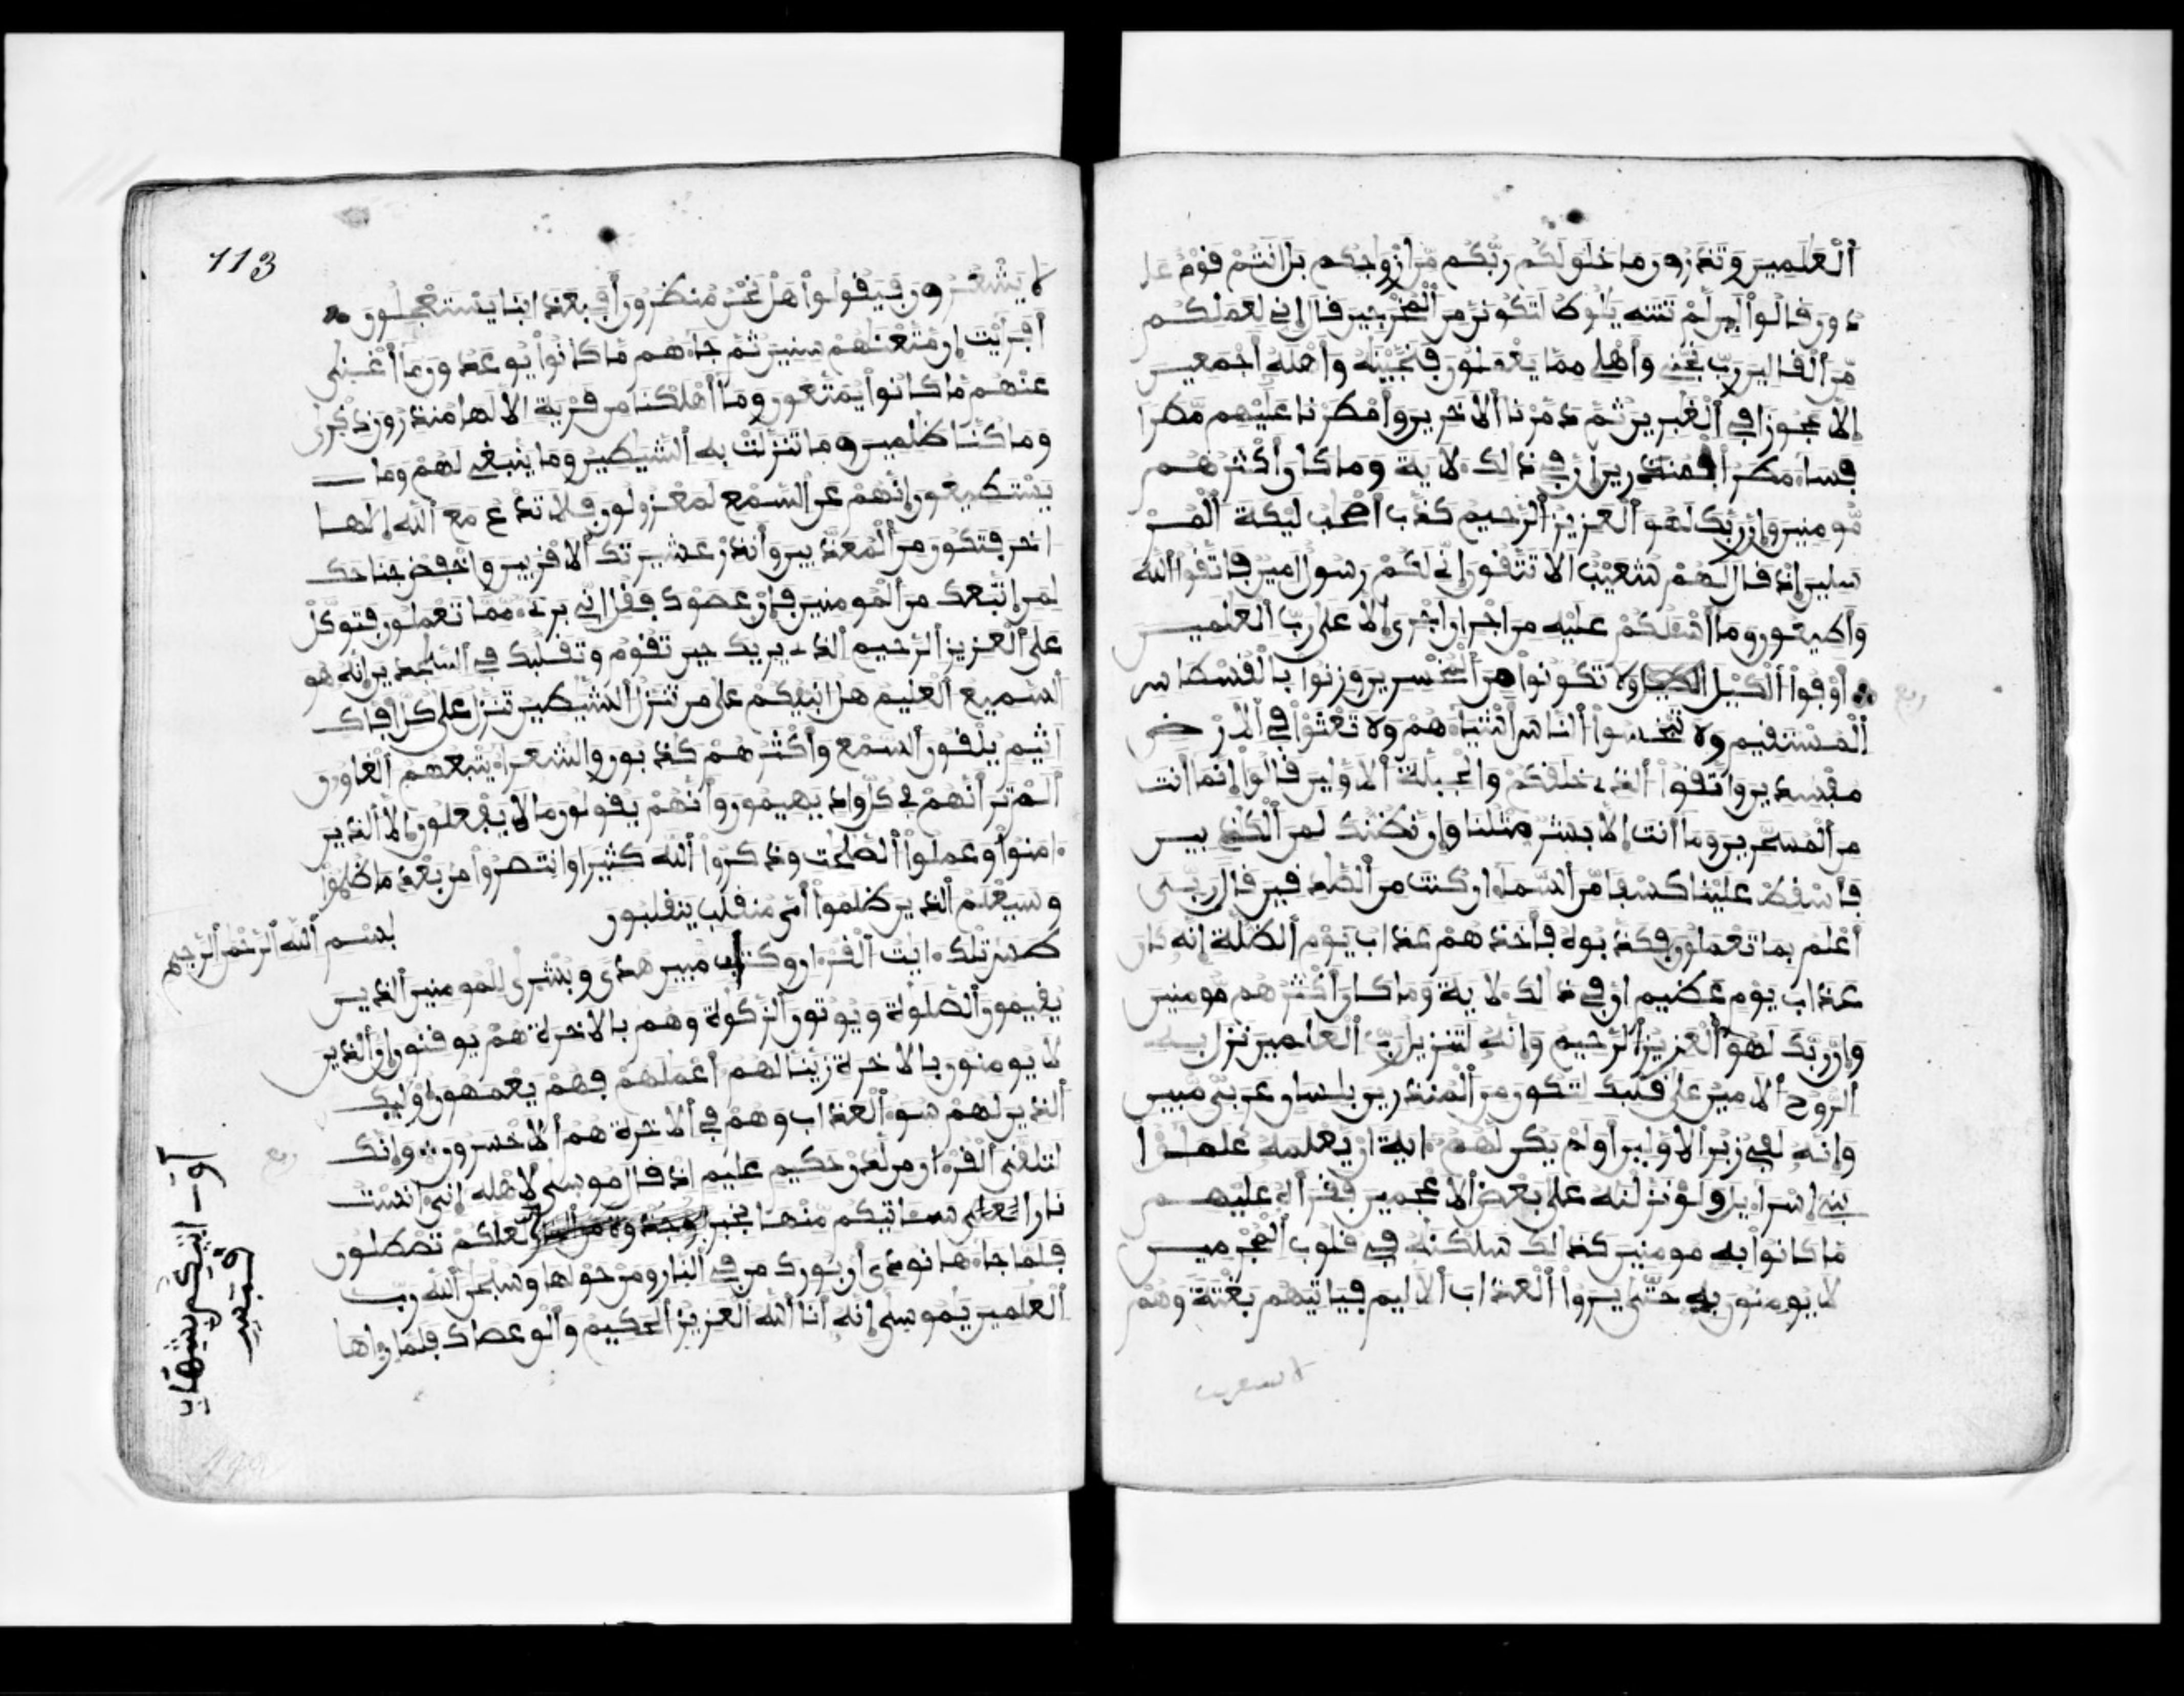 ٱلعلمين وتذرون ما خلق لكم ربكم من ازوجكم بل انتم قوم عا
دون قالوا لين لم تنته يلوط لتكونن من ٱلمخرجين قال اني لعملكم
من ٱلقالين رب نجني وأهلي مما يعملون فنجينه واهله اجمعين
إلا عجوزا في ٱلغبرين ثم دمرنا ٱلاخرين وأمطرنا عليهم مطرا
فساء مطر ٱلمنذرين ان في ذالك لاية وما كان أكثرهم
مومنين وإن ربك لهو ٱلعزيز ٱلرحيم كذب اصحب ليكة ٱلمر
سلين إذ قال لهم شعيب الا تتقون إني لكم رسول امين فاتقوا ٱلله
وأطيعون وما أسلكم عليه من اجر ان اجري إلا على رب ٱلعلمين
أوفوا ٱلكيل ولا تكونوا من ٱلمخسرين وزنوا بالقسطاس
ربع
ٱلمستقيم ولا تبخسوا ٱلناس اشياءهم ولا تعثوا في ٱلارض
مفسدين واتقوا ٱلذي خلقكم والجبلة ٱلاولين قالوا إنما أنت
من ٱلمسحرين وما أنت إلا بشر مثلنا وإن نظنك لمن ٱلكذبين
فأسقط علينا كسفا من ٱلسماء ان كنت من ٱلصدقين قال ربي
أعلم بما تعملون فكذبوه فأخذهم عذاب يوم ٱلظلة إنه كان
عذاب يوم عظيم ان في ذالك لاية وما كان أكثرهم مومنين
وإن ربك لهو ٱلعزيز ٱلرحيم وإنه لتنزيل رب ٱلعلمين نزل به
ٱلروح ٱلامين على قلبك لتكون من ٱلمنذرين بلسان عربي مبين
وإنه لفي زبر ٱلاولين أولم يكن لهم اية ان يعلمه علموا
بني إسراءيل ولو نزلنه على بعض ٱلاعجمين فقرأه عليهم
ما كانوا به مومنين كذالك سلكنه في قلوب ٱلمجرمين
لا يومنون به حتى يروا ٱلعذاب ٱلاليم فياتيهم بغتة وهم
لا يشعرون
113
لا يشعرون فيقولوا هل نحن منظرون أفبعذابنا يستعجلون
أفرأيت إن متعنهم سنين ثم جاءهم ما كانوا يوعدون ما أغنى
عنهم ما كانوا يمتعون وما أهلكنا من قرية الا لها منذرون ذكرى
وما كنا ظلمين وما تنزلت به ٱلشيطين وما ينبغي لهم وما
يستطيعون إنهم عن ٱلسمع لمعزولون فلا تدع مع ٱلله إلها
اخر فتكون من ٱلمعذبين وأنذر عشيرتك ٱلاقربين واخفض جناحك
لمن إتبعك من ٱلمومنين فإن عصوك فقل اني بريء مما تعملون فتوكل
على ٱلعزيز ٱلرحيم ٱلذي يريك حين تقوم وتقلبك في ٱلسجدين إنه هو
ٱلسميع ٱلعليم هل انبيكم على من تنزل ٱلشيطين تنزل على كل افاك
اثيم يلقون ٱلسمع وأكثرهم كذبون والشعراء يتبعهم ٱلغاون
ألم تر أنهم في كل واد يهيمون وأنهم يقولون ما لا يفعلون إلا ٱلذين
ءامنوا وعملوا ٱلصلحت وذكروا ٱلله كثيرا وانتصروا من بعد ما ظلموا
وسيعلم ٱلذين ظلموا أي منقلب ينقلبون
بسم ٱلله ٱلرحمن ٱلرحيم
طس تلك ءايت ٱلقرءان وكتاب مبين هدى وبشرى للمومنين ٱلذين
يقيمون ٱلصلوة ويوتون ٱلزكوة وهم بالاخرة هم يوقنون إن ٱلذين
لا يومنون بالاخرة زينا لهم أعملهم فهم يعمهون أوليك
ٱلذين لهم سوء ٱلعذاب وهم في ٱلاخرة هم ٱلاخسرون وإنك
ربع
لتلقى ٱلقرءان من لدن حكيم عليم إذ قال موسى لاهله إني ءانست
نارا ساتيكم منها بخبر لعلكم تصطلون
أو ـ اتيكم بشهاب
قبس
فلما جاءها نودي ان بورك من في ٱلنار ومن حولها وسبحن ٱلله رب
ٱلعلمين يموسى إنه أنا ٱلله ٱلعزيز ٱلحكيم وألق عصاك فلما رءاها